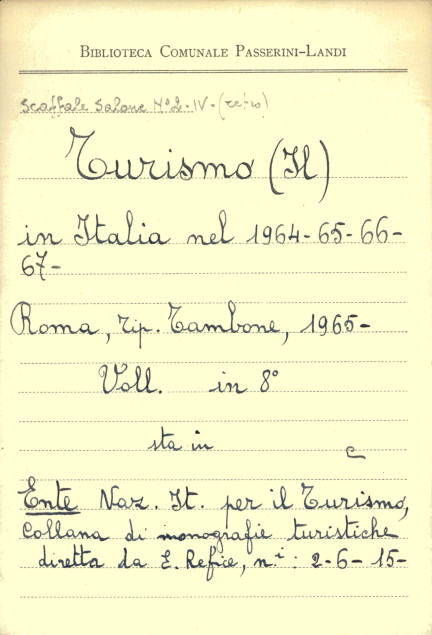 BIBLIOTECA COMUNALE PASSERINI-LANDI
Scaffale Salone Nº 2-IV-(retro)
Turismo (Il)
in Italia nel 1964-65-66-
67-
Roma, Tip. Tambone, 1965-
Voll. in 8°
sta in
C
Ente Naz. It. per il Turismo,
Collana di monografie turistiche
diretta da E. Refice, n.i: 2-6-15-